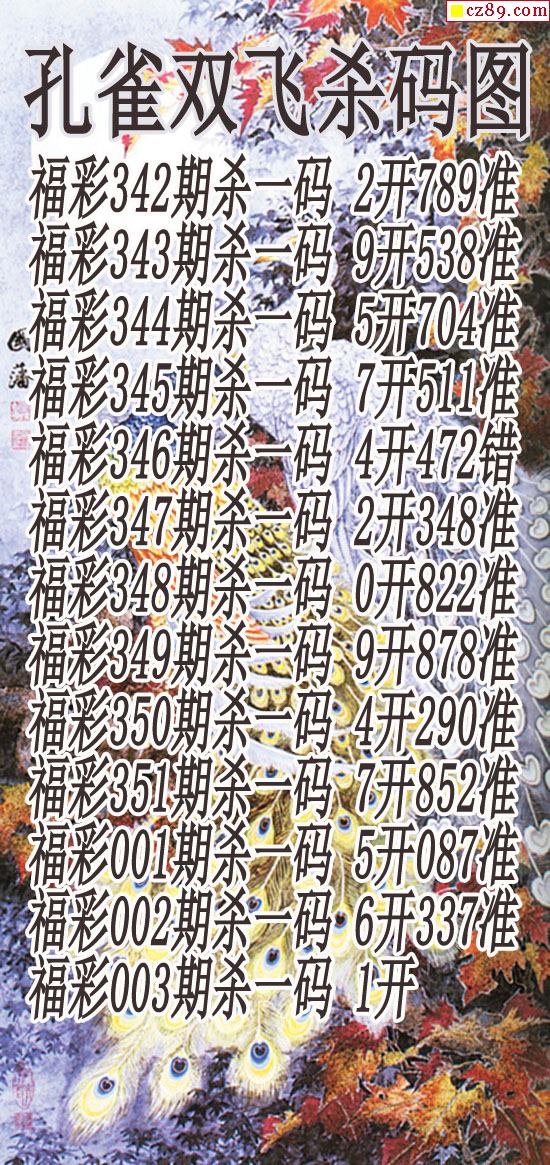 cz89.com
孔雀双飞杀码图
福彩342期杀一码 2开789准
福彩343期杀一码 9开538准
福彩344期杀一码 5开704准
福彩345期杀一码 7开511准
福彩346期杀一码 4开472错
福彩347期杀一码 2开348准
福彩348期杀一码 0开822准
福彩349期杀一码 9开878准
福彩350期杀一码 4开290准
福彩351期杀一码 7开852准
福彩001期杀一码 5开087准
福彩002期杀一码 6开337准
福彩003期杀一码 1开